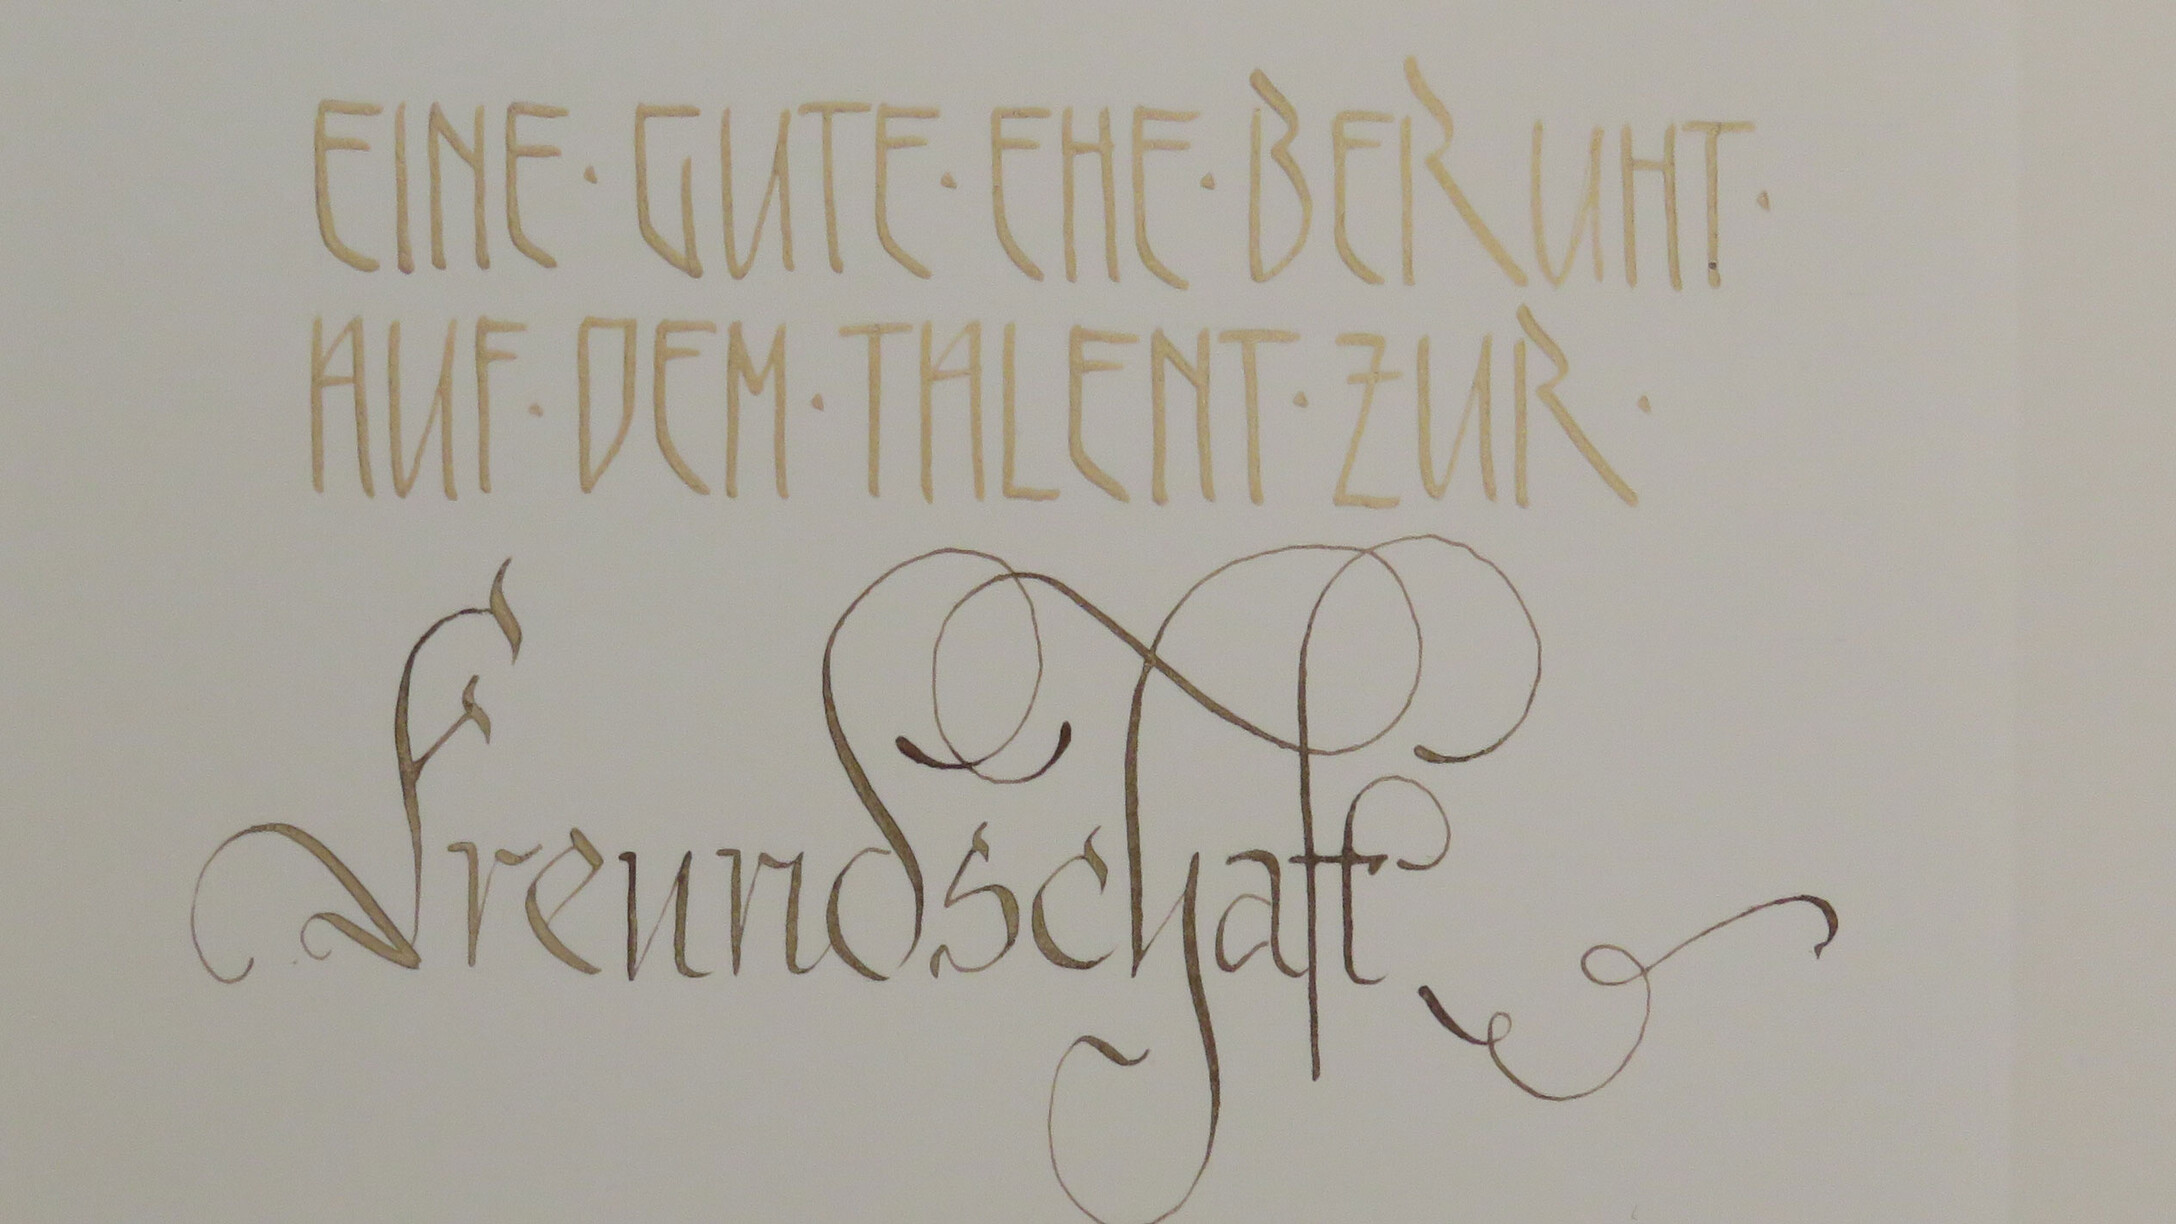 EINE · GUTE · EHE · BERUHT ·
AUF · DEM · TALENT · ZUR ·
Freundschaft